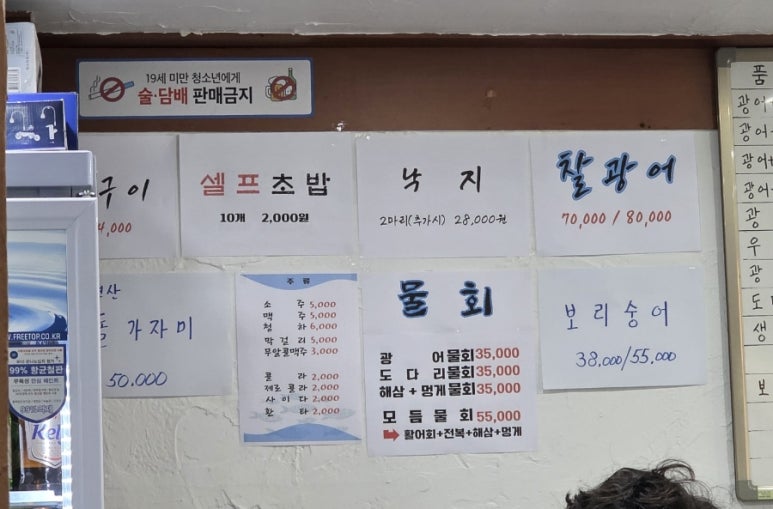 19세 미만 청소년에게
술·담배 판매금지
구이
4,000
셀프초밥
10개 2,000원
낙지
2마리(추가시) 28,000원
찰광어
70,000 / 80,000
가자미
50.000
주류
소주 5,000
맥주 5,000
청하 6,000
막걸리 5,000
무알콜맥주 3,000
콜라 2,000
제로콜라 2,000
사이다 2,000
환타 2,000
물회
광어물회 35,000
도다리물회 35,000
해삼+멍게물회 35,000
모듬물회 55,000
➡ 활어회+전복+해삼+멍게
보리숭어
38.000/55.000
품
광어
광어
광어
광어
광
우
광
도
생
보
WWW.FREETOP.CO.KR
99% 항균철판
Kel